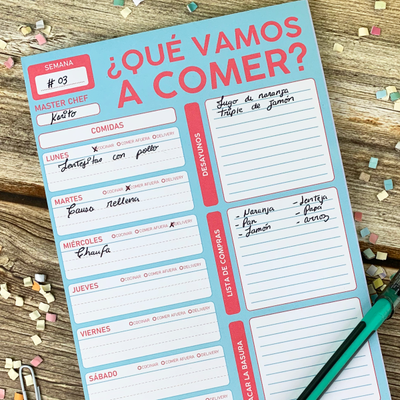 SEMANA
# 03
¿QUÉ VAMOS
A COMER?
MASTER CHEF
COMIDAS
LUNES XCOCINAR OCOMER AFUERA ODELIVERY
Lentejitas con pollo
MARTES OCOCINAR XCOMER AFUERA ODELIVERY
Causa rellena
MIÉRCOLES OCOCINAR OCOMER AFUERA XDELIVERY
Chaufa
JUEVES OCOCINAR OCOMER AFUERA ODELIVERY
VIERNES OCOCINAR OCOMER AFUERA ODELIVERY
SÁBADO OCOCINAR OCOMER AFUERA ODELIVERY
DESAYUNOS
Jugo de naranja
Triple de jamón
LISTA DE COMPRAS
- Naranja - Lenteja
- Pan - Papa
- Jamón - arroz
ACAR LA BASURA